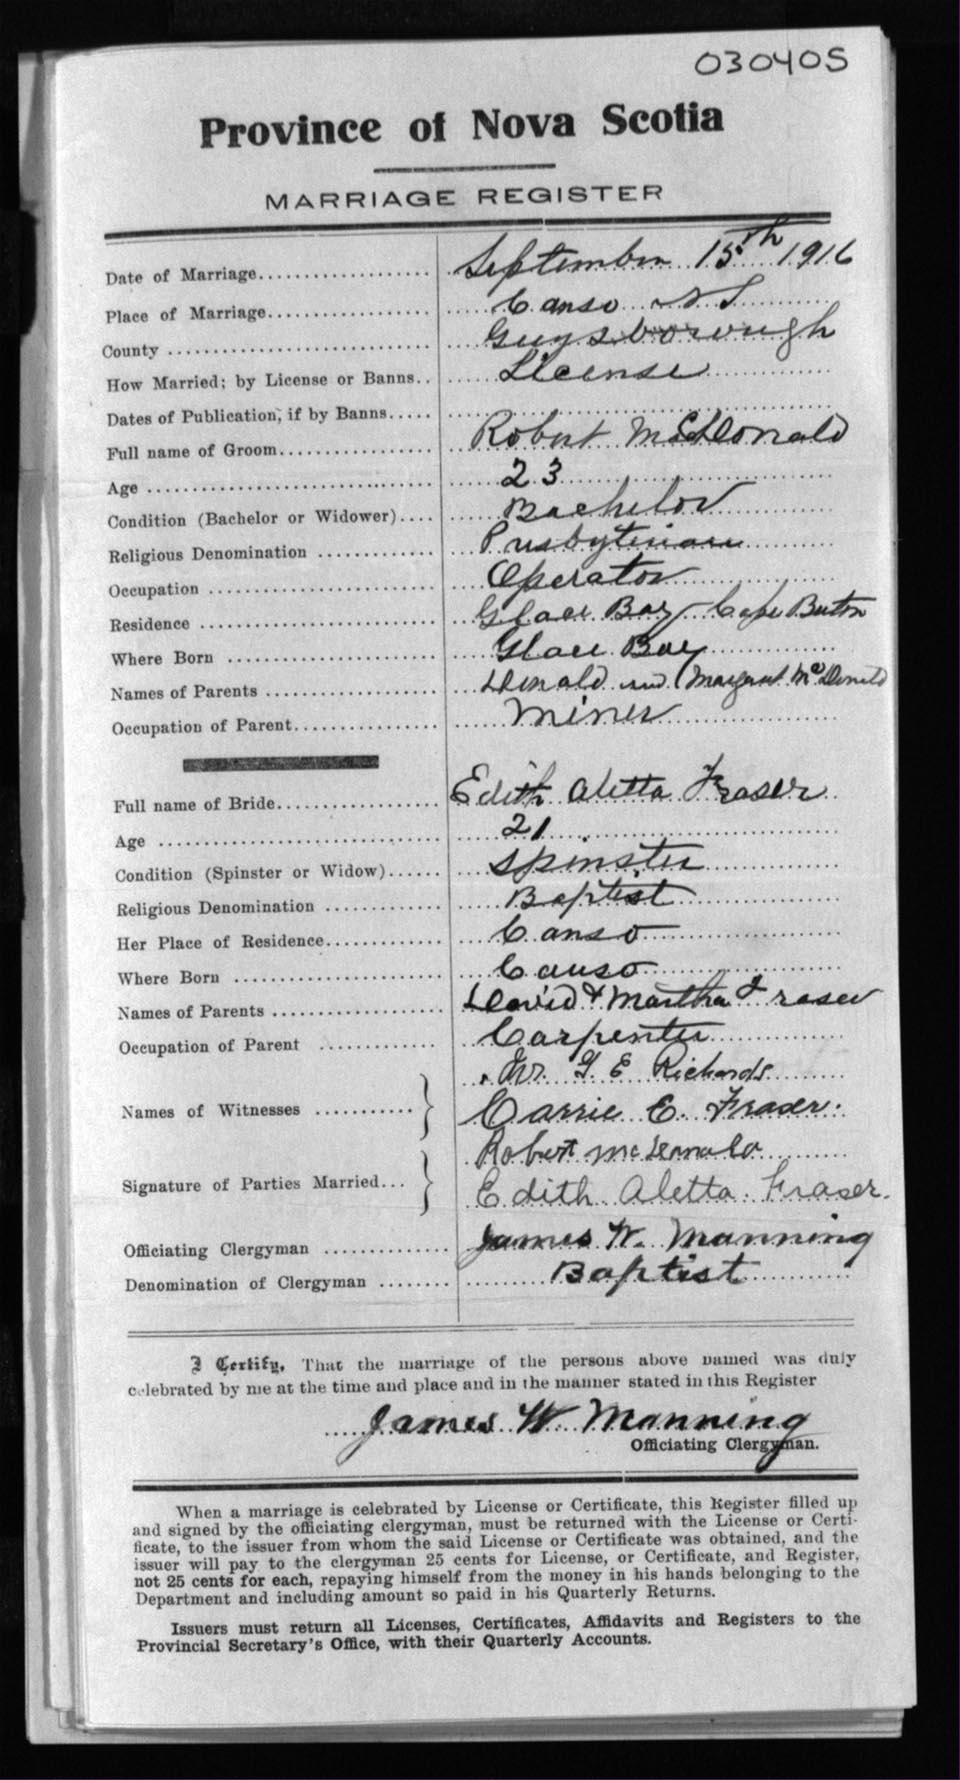 030405
Province of Nova Scotia
MARRIAGE REGISTER
Date of Marriage.................... September 15th 1916
Place of Marriage................... Canso N S
County ............................. Guysborough
How Married; by License or Banns.. License
Dates of Publication, if by Banns.....
Full name of Groom.................. Robert McDonald
Age ................................ 23
Condition (Bachelor or Widower).... Bachelor
Religious Denomination ............. Presbyterian
Occupation ......................... Operator
Residence .......................... Glace Bay Cape Breton
Where Born ......................... Glace Bay
Names of Parents ................... Donald and Margaret McDonald
Occupation of Parent................ Miner
Full name of Bride.................. Edith Aletta Fraser
Age ................................ 21
Condition (Spinster or Widow)...... Spinster
Religious Denomination ............. Baptist
Her Place of Residence.............. Canso
Where Born ......................... Canso
Names of Parents ................... David & Martha Fraser
Occupation of Parent ............... Carpenter
Names of Witnesses ............ } G E Richards
Carrie E. Fraser.
Signature of Parties Married... } Robert McDonald
Edith Aletta Fraser.
Officiating Clergyman .............. James W. Manning
Denomination of Clergyman ........ Baptist
I Certify, That the marriage of the persons above named was duly
celebrated by me at the time and place and in the manner stated in this Register
James W Manning
Officiating Clergyman.
When a marriage is celebrated by License or Certificate, this Register filled up
and signed by the officiating clergyman, must be returned with the License or Certi-
ficate, to the issuer from whom the said License or Certificate was obtained, and the
issuer will pay to the clergyman 25 cents for License, or Certificate, and Register,
not 25 cents for each, repaying himself from the money in his hands belonging to the
Department and including amount so paid in his Quarterly Returns.
Issuers must return all Licenses, Certificates, Affidavits and Registers to the
Provincial Secretary's Office, with their Quarterly Accounts.